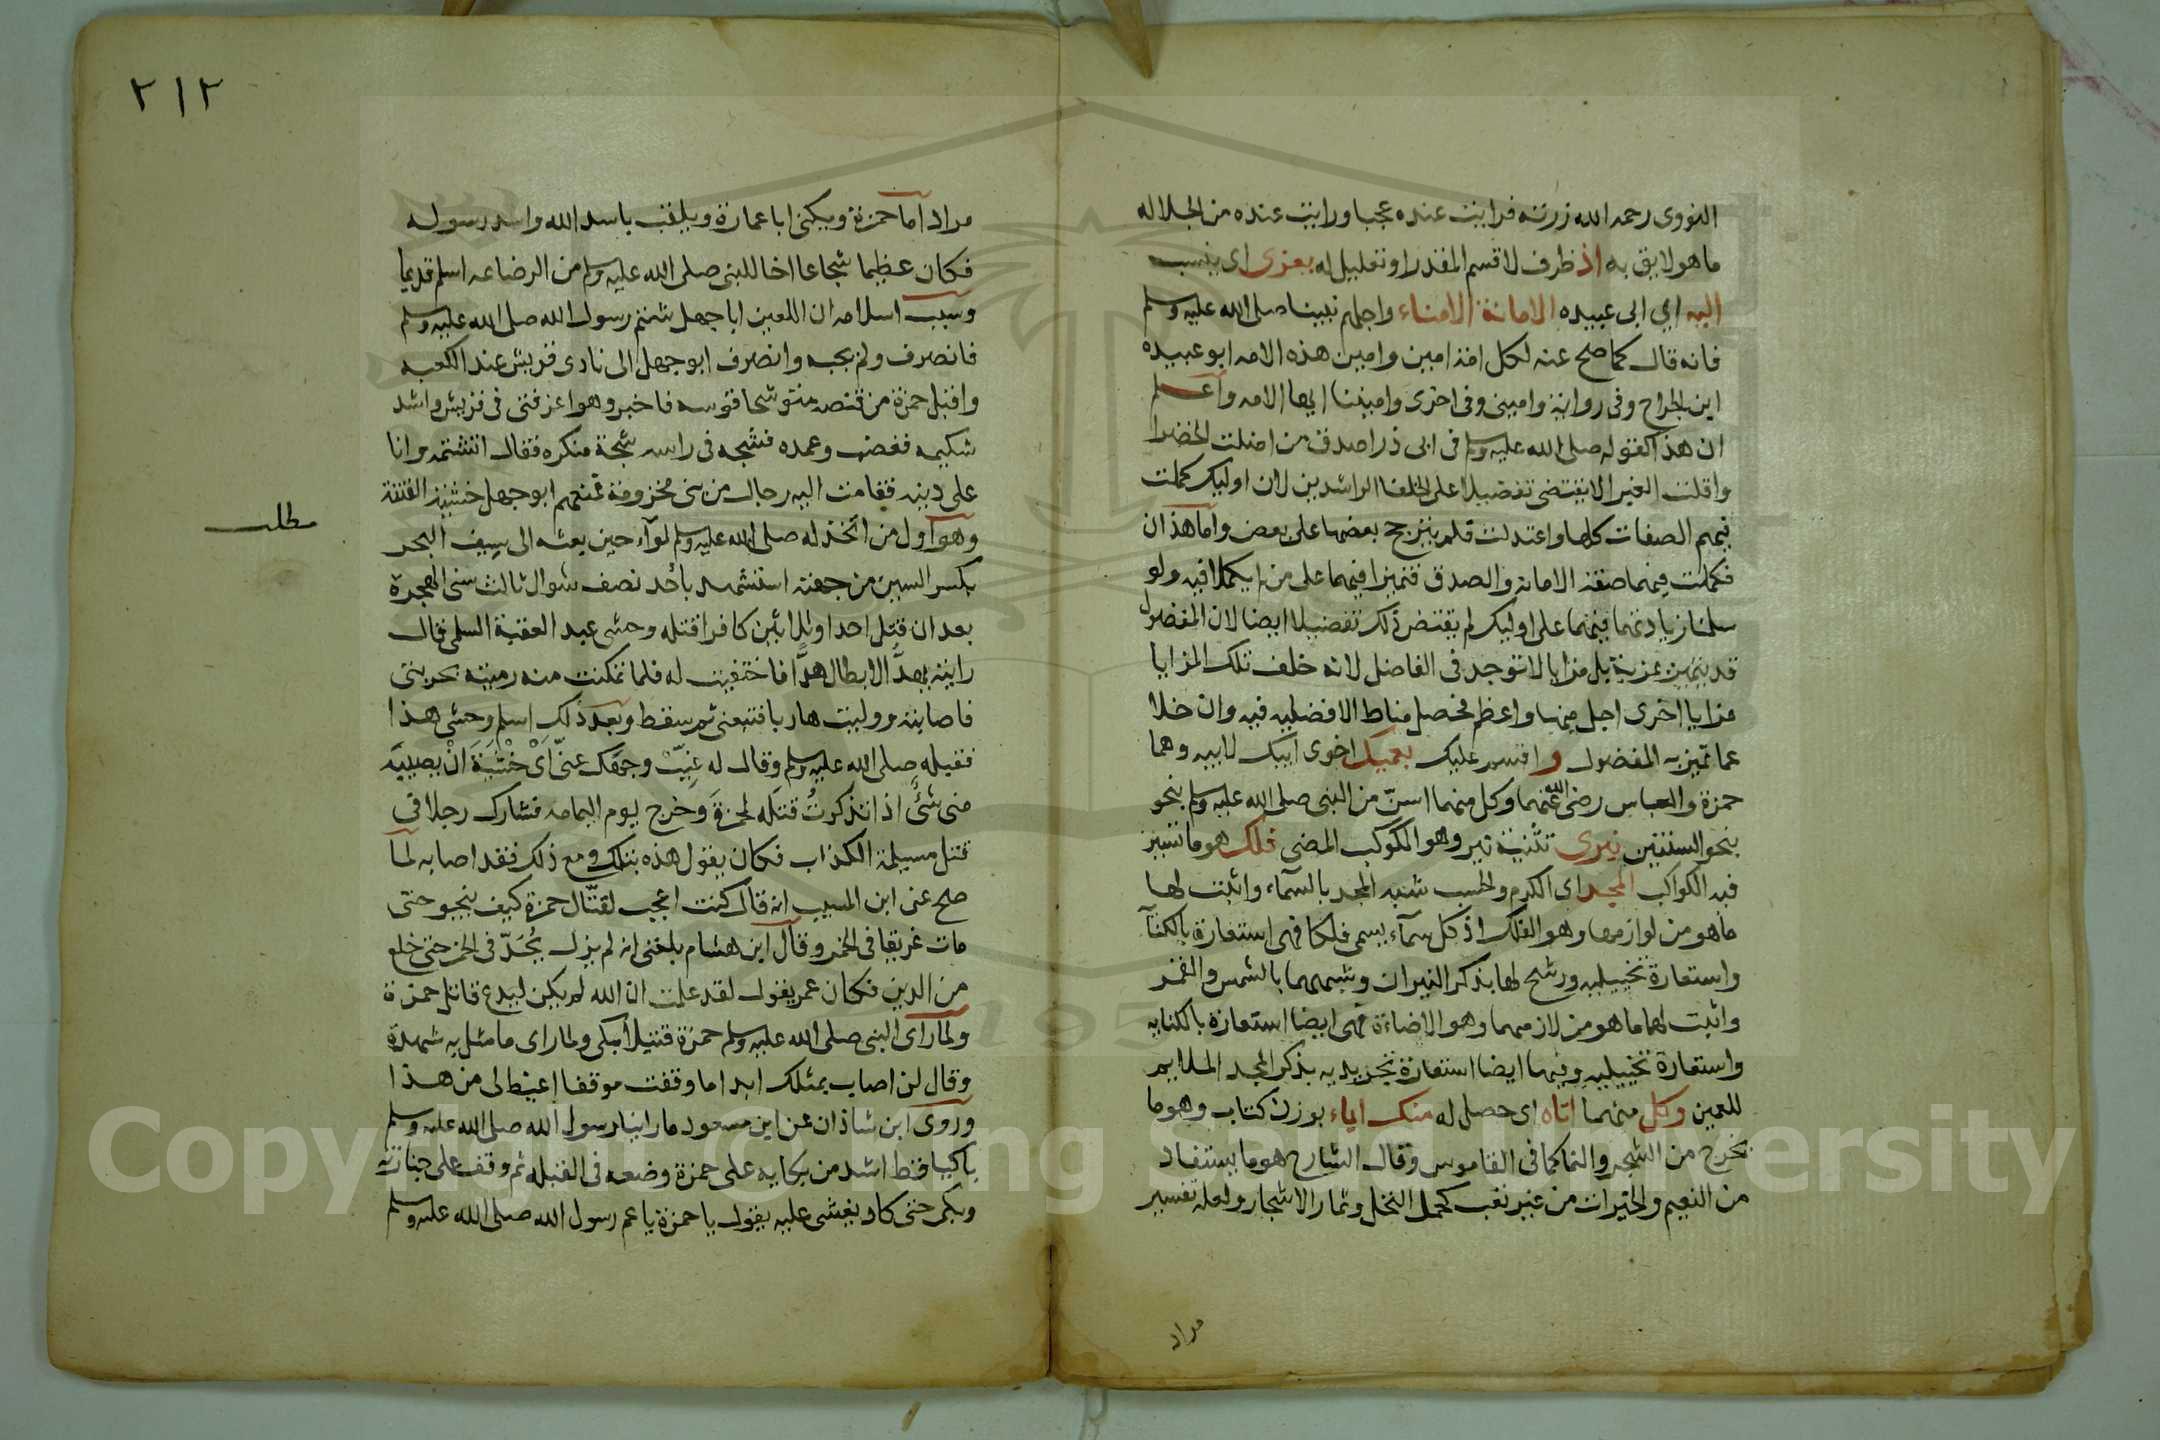 النووى رحمه الله زرته فرايت عنده عجبا ورايت عنده من الجلاله
ما هو لايق به اذ ظرف لاقسم المقدر او تعليل له يعزى اى ينسب
اليه اى ابى عبيده الامانة الامناء واجلهم نبينا صلى الله عليه وسلم
فانه قال كما صح عنه لكل امة امين وامين هذه الامه ابو عبيده
ابن الجراح وفى رواية واميني وفى اخرى واميننا ايها الامه واعلم
ان هذا كقوله صلى الله عليه وسلم فى ابى ذر اصدق من اضلت الخضرا
واقلت الغبرا لا يقتضى تفضيلا على الخلفا الراشدين لان اوليك كملت
فيهم الصفات كلها واعتدلت فلم يترجح بعضها على بعض واما هذان
فكملت فيهما صفة الامانة والصدق فتميزا فيهما على من لم يكملا فيه ولو
سلمنا زيادتهما فيهما على اوليك لم يقتض ذلك تفضيلا ايضا لان المفضول
قد يتميز بمزية بل مزايا لا توجد فى الفاضل لانه خلف تلك المزايا
مزايا اخرى اجل منها واعظم فحصل مناط الافضليه فيه وان خلا
عما تميز به المفضول و اقسم عليك بعميك اخوى ابيك لابيه وهما
حمزة والعباس رضى الله عنهما وكل منهما اسن من النبى صلى الله عليه وسلم بنحو
بنحو السنتين نيرى تثنية نير وهو الكوكب المضى فلك هو ما تسير
فيه الكواكب المجد اى الكرم والحسب شبه المجد بالسمآء واثبت لها
ما هو من لوازمها وهو الفلك اذ كل سمآء يسمى فلكا فهى استعارة بالكنآ
واستعارة تخييليه ورشح لها بذكر النيران وشبههما بالشمس والقمر
واثبت لهما ما هو من لازمهما وهو الاضاءة فهى ايضا استعارة بالكنايه
واستعارة تخييليه وفيها ايضا استعارة تجريديه بذكر المجد الملايم
للعمين وكل منهما اتاه اى حصل له منك اياء بوزن كتاب وهو ما
يخرج من الشجر والنما كما فى القاموس وقال الشارح هو ما يستفاد
من النعيم والخيرات من غير تعب كحمل النخل وثمار الاشجار ولعله تفسير
مراد
٢١٢
مراد اما حمزة ويكنى ابا عمارة ويلقب باسد الله واسد رسوله
فكان عظيما شجاعا اخا للنبى صلى الله عليه وسلم من الرضاعه اسلم قديما
وسبب اسلامه ان اللعين ابا جهل شتم رسول الله صلى الله عليه وسلم
فانصرف ولم يجبه وانصرف ابو جهل الى نادى قريش عند الكعبه
واقبل حمزة من قنصه متوشحا قوسه فاخبر وهو اعز فتى فى قريش واشد
شكيمه فغضب وعمده فشجه فى راسه شجة منكره فقال اتشتمه وانا
على دينه فقامت اليه رجال من بنى مخزوم فمنعهم ابو جهل خشية الفتنة
وهو اول من اتخذ له صلى الله عليه وسلم لوآء حين بعثه الى سيف البحر
مطلب
بكسر السين من جهنة استشهد باحُد نصف شوال ثالث سنى الهجرة
بعد ان قتل احدا وثلاثين كافرا قتله وحشى عبد العقبة السلمى قال
رايته يهدُّ الابطال هدًّا فاختفيت له فلما تمكنت منه رميته بحربتى
فاصابته ووليت هاربا فتبعنى ثم سقط وبعد ذلك اسلم وحشى هذا
فقبله صلى الله عليه وسلم وقال له غيِّبْ وجهَك عنّى اَىْ خَشْيَةَ انْ يصيبَه
منى شئٌ اذا تذكرتُ قتلَه لحمزةَ وخرج يوم اليمامه فشارك رجلا فى
قتل مسيلمة الكذاب فكان يقول هذه بتلك ومع ذلك فقد اصابه لما
صح عن ابن المسيب انه قال كنت اعجب لقتّال حمزة كيف ينجو حتى
مات غريقا فى الخمر وقال ابن هشام بلغنى انه لم يزل يُحَدّ فى الخمر حتى خلع
من الدين فكان عمر يقول لقد علمت ان الله لم يكن ليدع قاتل حمزة
ولما راى النبى صلى الله عليه وسلم حمزة قتيلا بكى ولما راى ما مثل به شهدة
وقال لن اصاب بمثلك ابدا ما وقفت موقفا اغيظ لى من هذا
وروى ابن شاذان عن ابن مسعود ما راينا رسول الله صلى الله عليه وسلم
باكيا قط اشد من بكايه على حمزة وضعه فى القبله ثم وقف على جنازته
وبكى حتى كاد يغشى عليه يقول يا حمزة يا عم رسول الله صلى الله عليه وسلم
Copyright © King Saud University